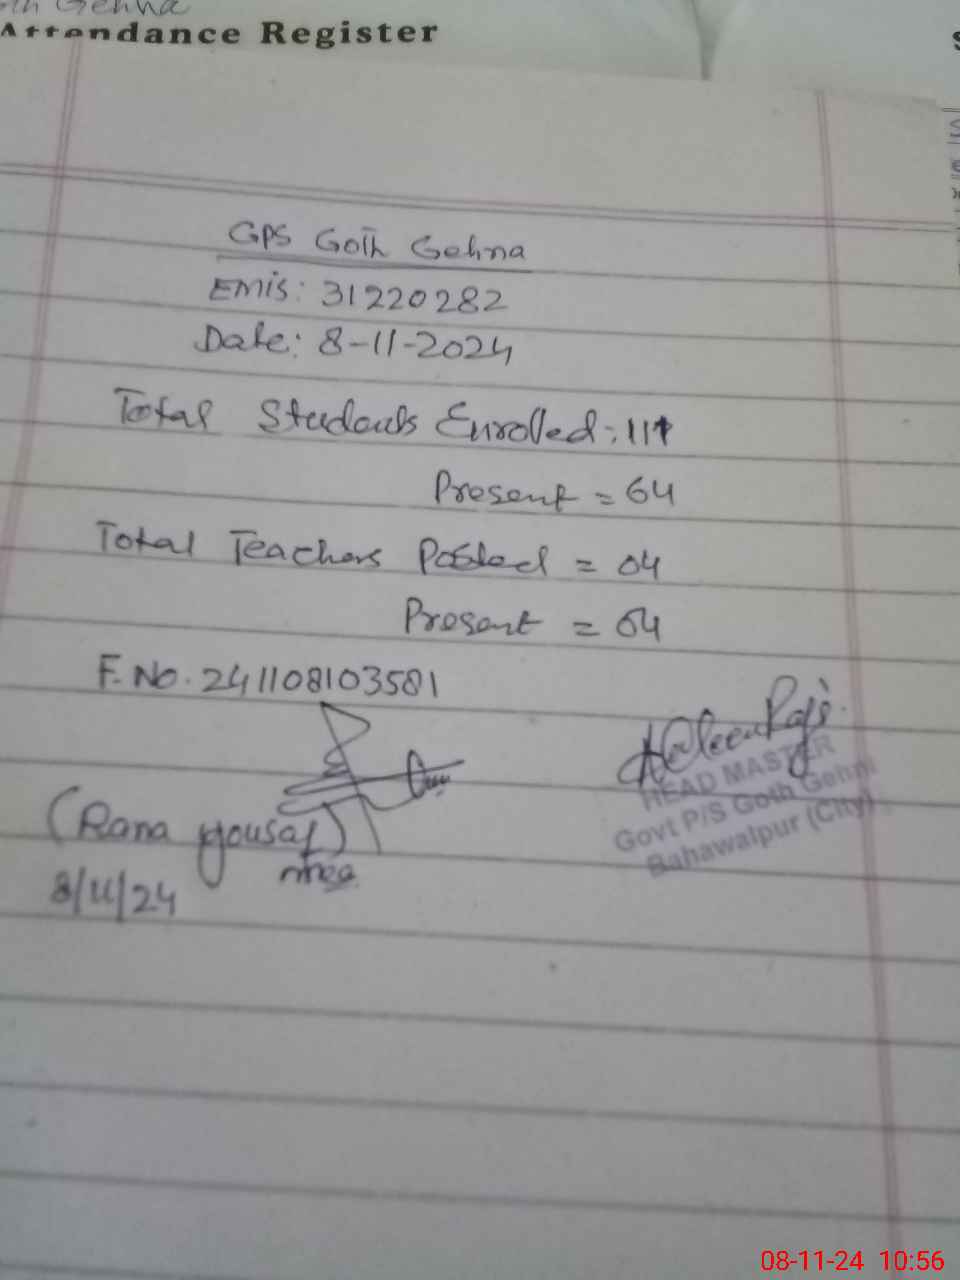 Gehna
Attendance Register
GPS Goth Gehna
EMIS: 31220282
Date: 8-11-2024
Total Students Enrolled: 111
Present = 64
Total Teachers Posted = 04
Present = 04
F. No. 241108103581
HEAD MASTER
Govt P/S Goth Gehni
Bahawalpur (City)
(Rana yousaf)
mea
8/11/24
08-11-24 10:56